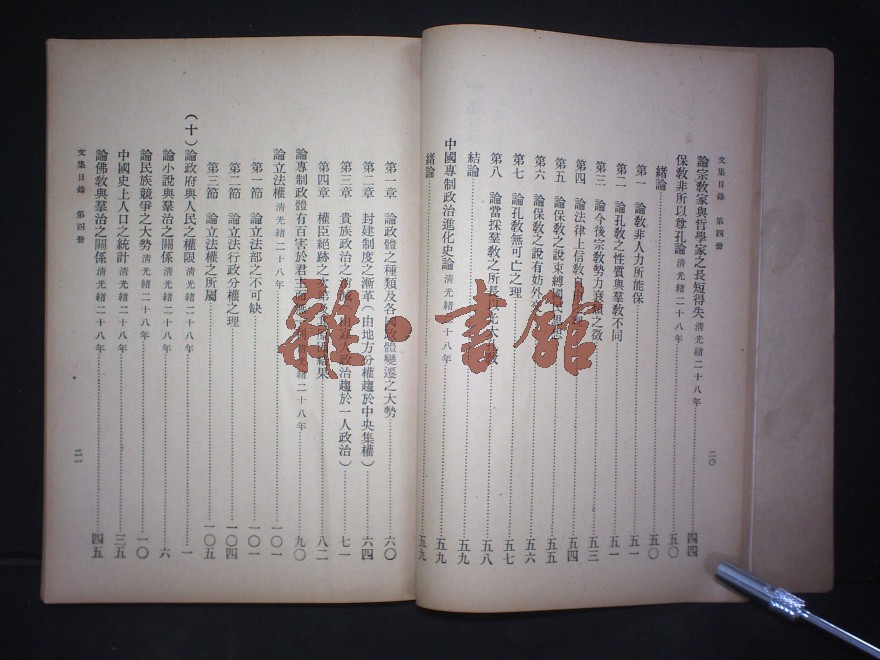 文集目錄　第四册
論宗敎家與哲學家之長短得失 清光緒二十八年 四四
保敎非所以尊孔論 清光緒二十八年 五〇
緒論 五〇
第一　論敎非人力所能保 五一
第二　論孔敎之性質與羣敎不同 五一
第三　論今後宗敎勢力衰頹之徵 五三
第四　論法律上信敎自由之理 五四
第五　論保敎之說束縛國民思想 五五
第六　論保敎之說有妨外交 五六
第七　論孔敎無可亡之理 五七
第八　論當採羣敎之所長以光大孔敎 五八
結論 五九
中國專制政治進化史論 清光緒二十八年 五九
緒論 五九
二〇
第一章　論政體之種類及各國政體變遷之大勢 六〇
第二章　封建制度之漸革（由地方分權趨於中央集權） 六四
第三章　貴族政治之消滅（由寡人政治趨於一人政治） 七一
第四章　權臣絕跡之次第及 結果 八二
論專制政體有百害於君主而無一利 清光緒二十八年 九〇
論立法權 清光緒二十八年 一〇一
第一節　論立法部之不可缺 一〇一
第二節　論立法行政分權之理 一〇四
第三節　論立法權之所屬 一〇五
（十）論政府與人民之權限 清光緒二十八年 一
論小說與羣治之關係 清光緒二十八年 六
論民族競爭之大勢 清光緒二十八年 一〇
中國史上人口之統計 清光緒二十八年 三五
論佛敎與羣治之關係 清光緒二十八年 四五
文集目錄　第四册
二一
雜·書館